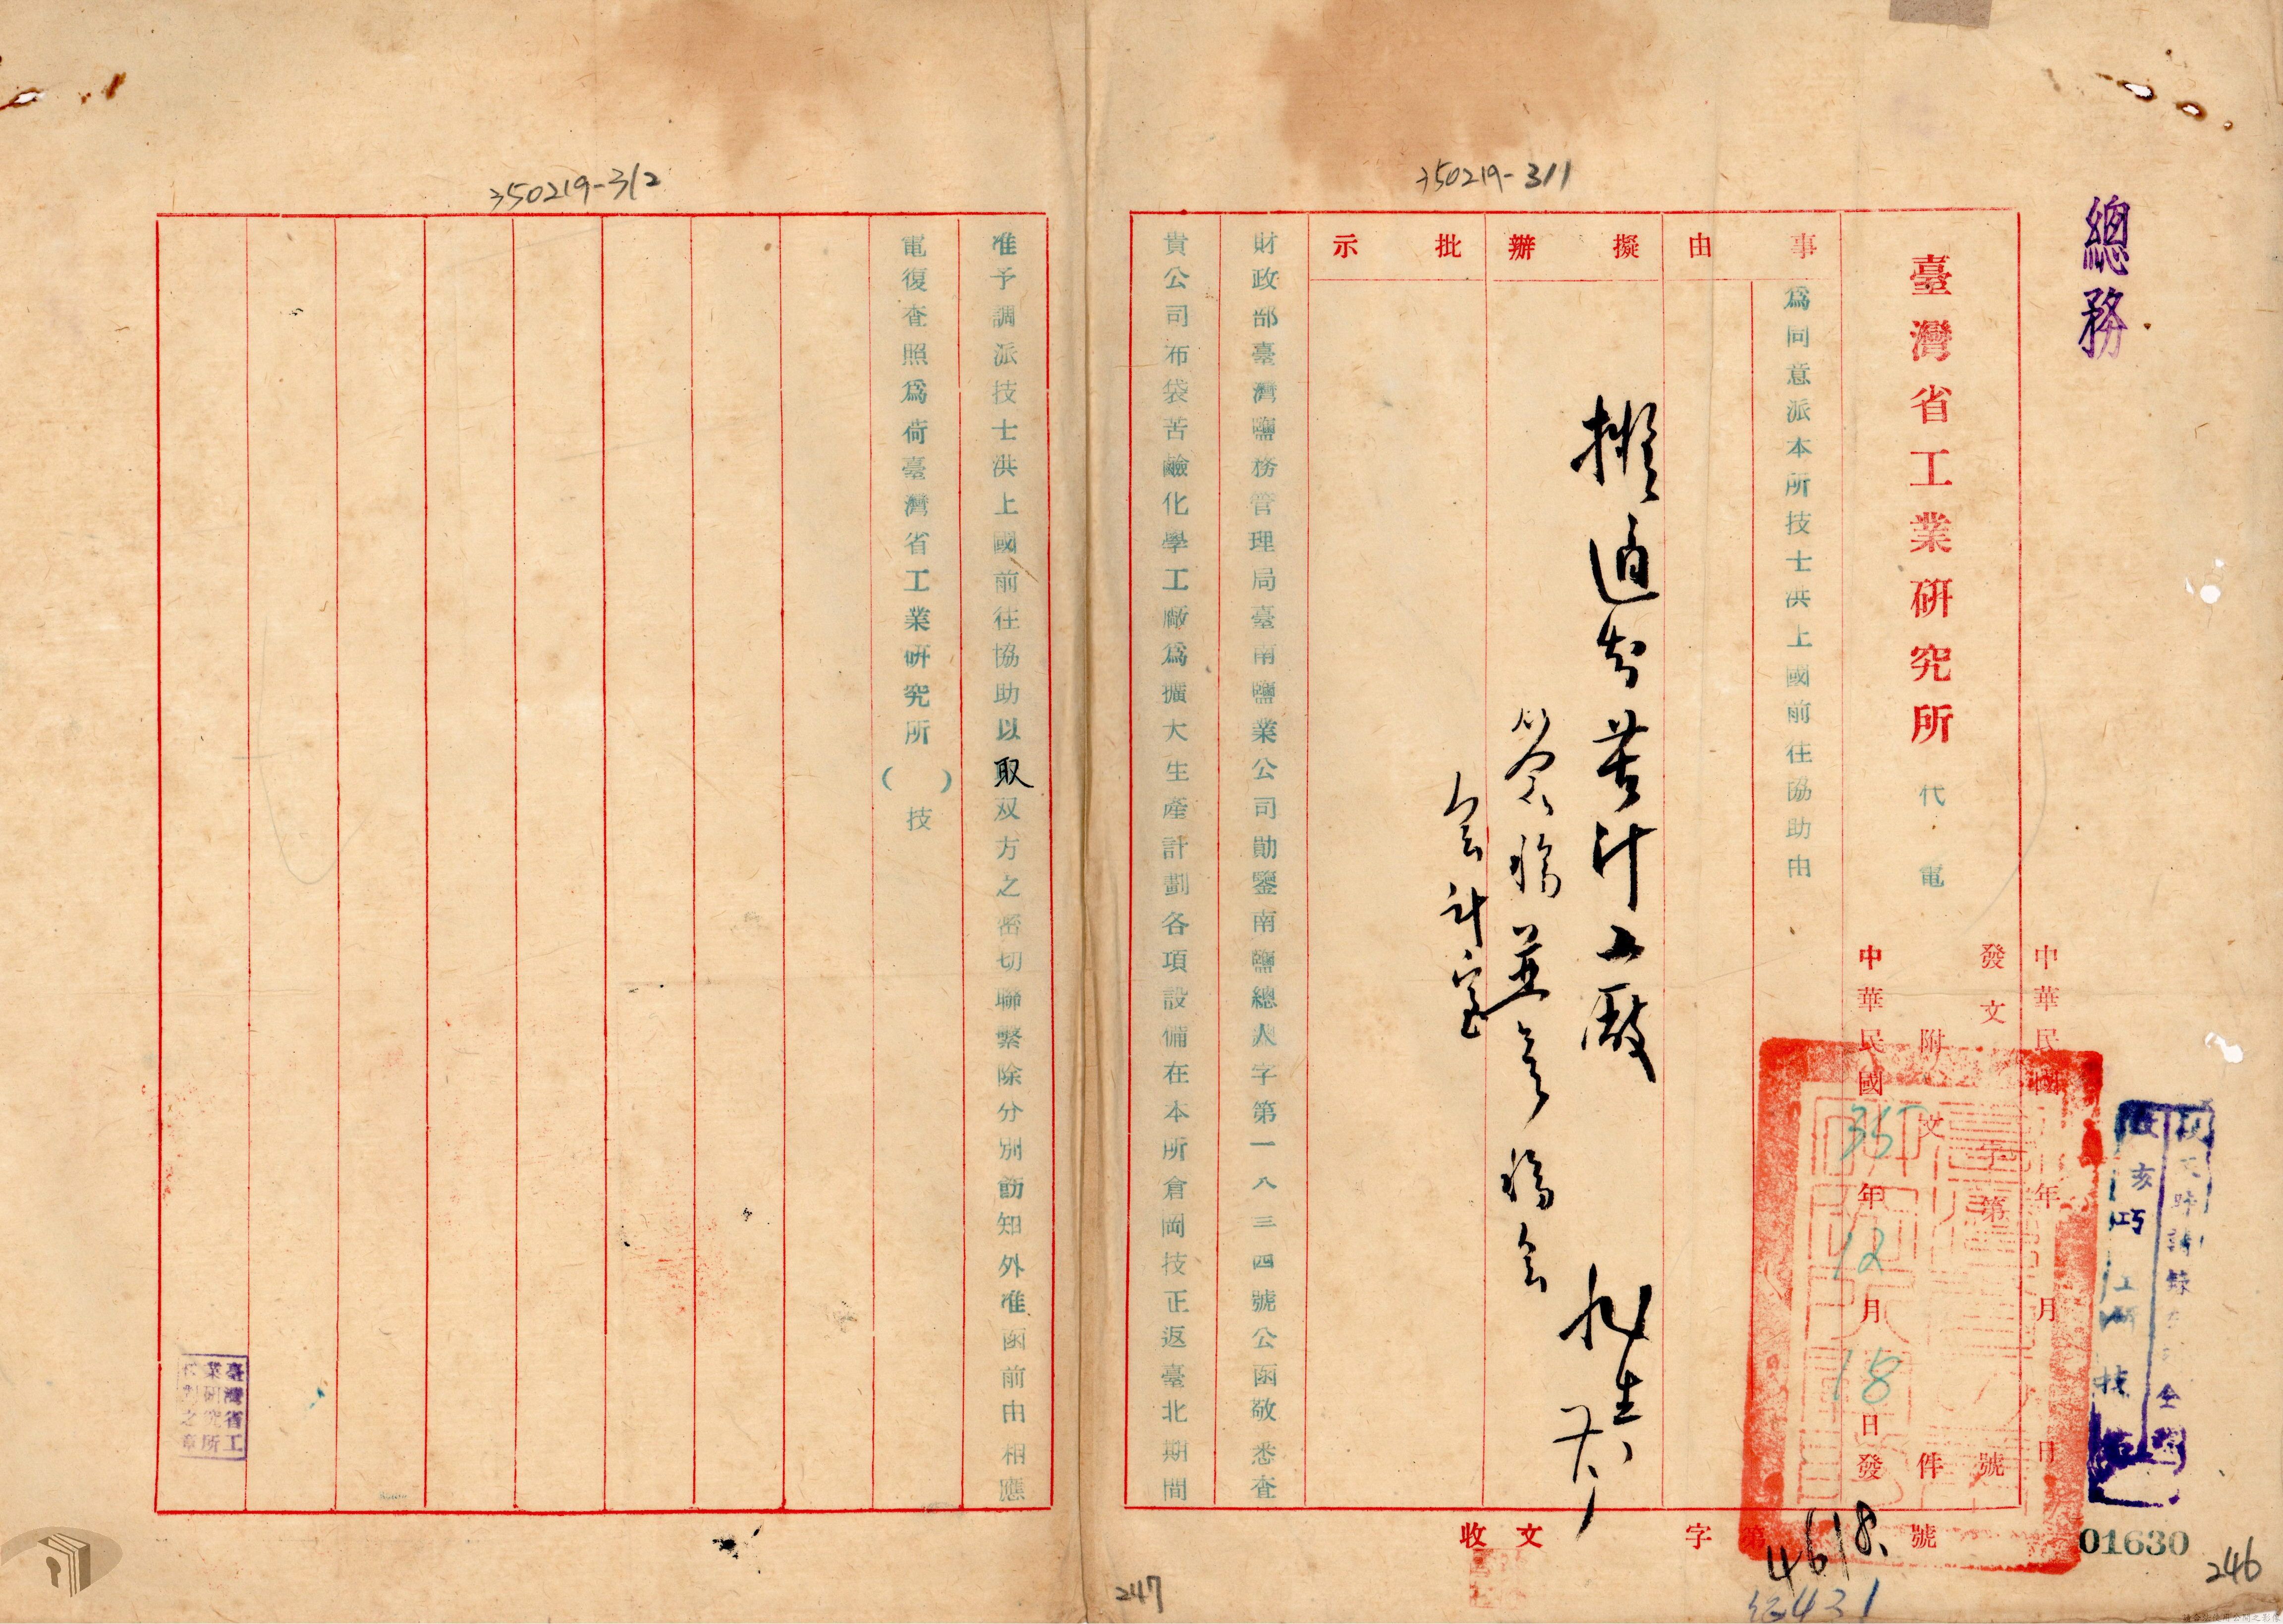 350219-311
350219-312
總務
臺灣省工業研究所 代電
中華民國 年 月 日
發文 字第 號
附文 件
中華民國35年12月18日發
事由
為同意派本所技士洪上國前往協助由
擬辦
擬通知苦汁工廠
會計室
批示
財政部臺灣鹽務管理局臺南鹽業公司勛鑒南鹽總人字第一八三四號公函敬悉查
貴公司布袋苦鹼化學工廠為擴大生產計劃各項設備在本所倉岡技正返臺北期間
准予調派技士洪上國前往協助以取双方之密切聯繫除分別飭知外准函前由相應
電復查照為荷臺灣省工業研究所( )技
臺灣省工業研究所
之章
收文 字第4618號
01630
246
247